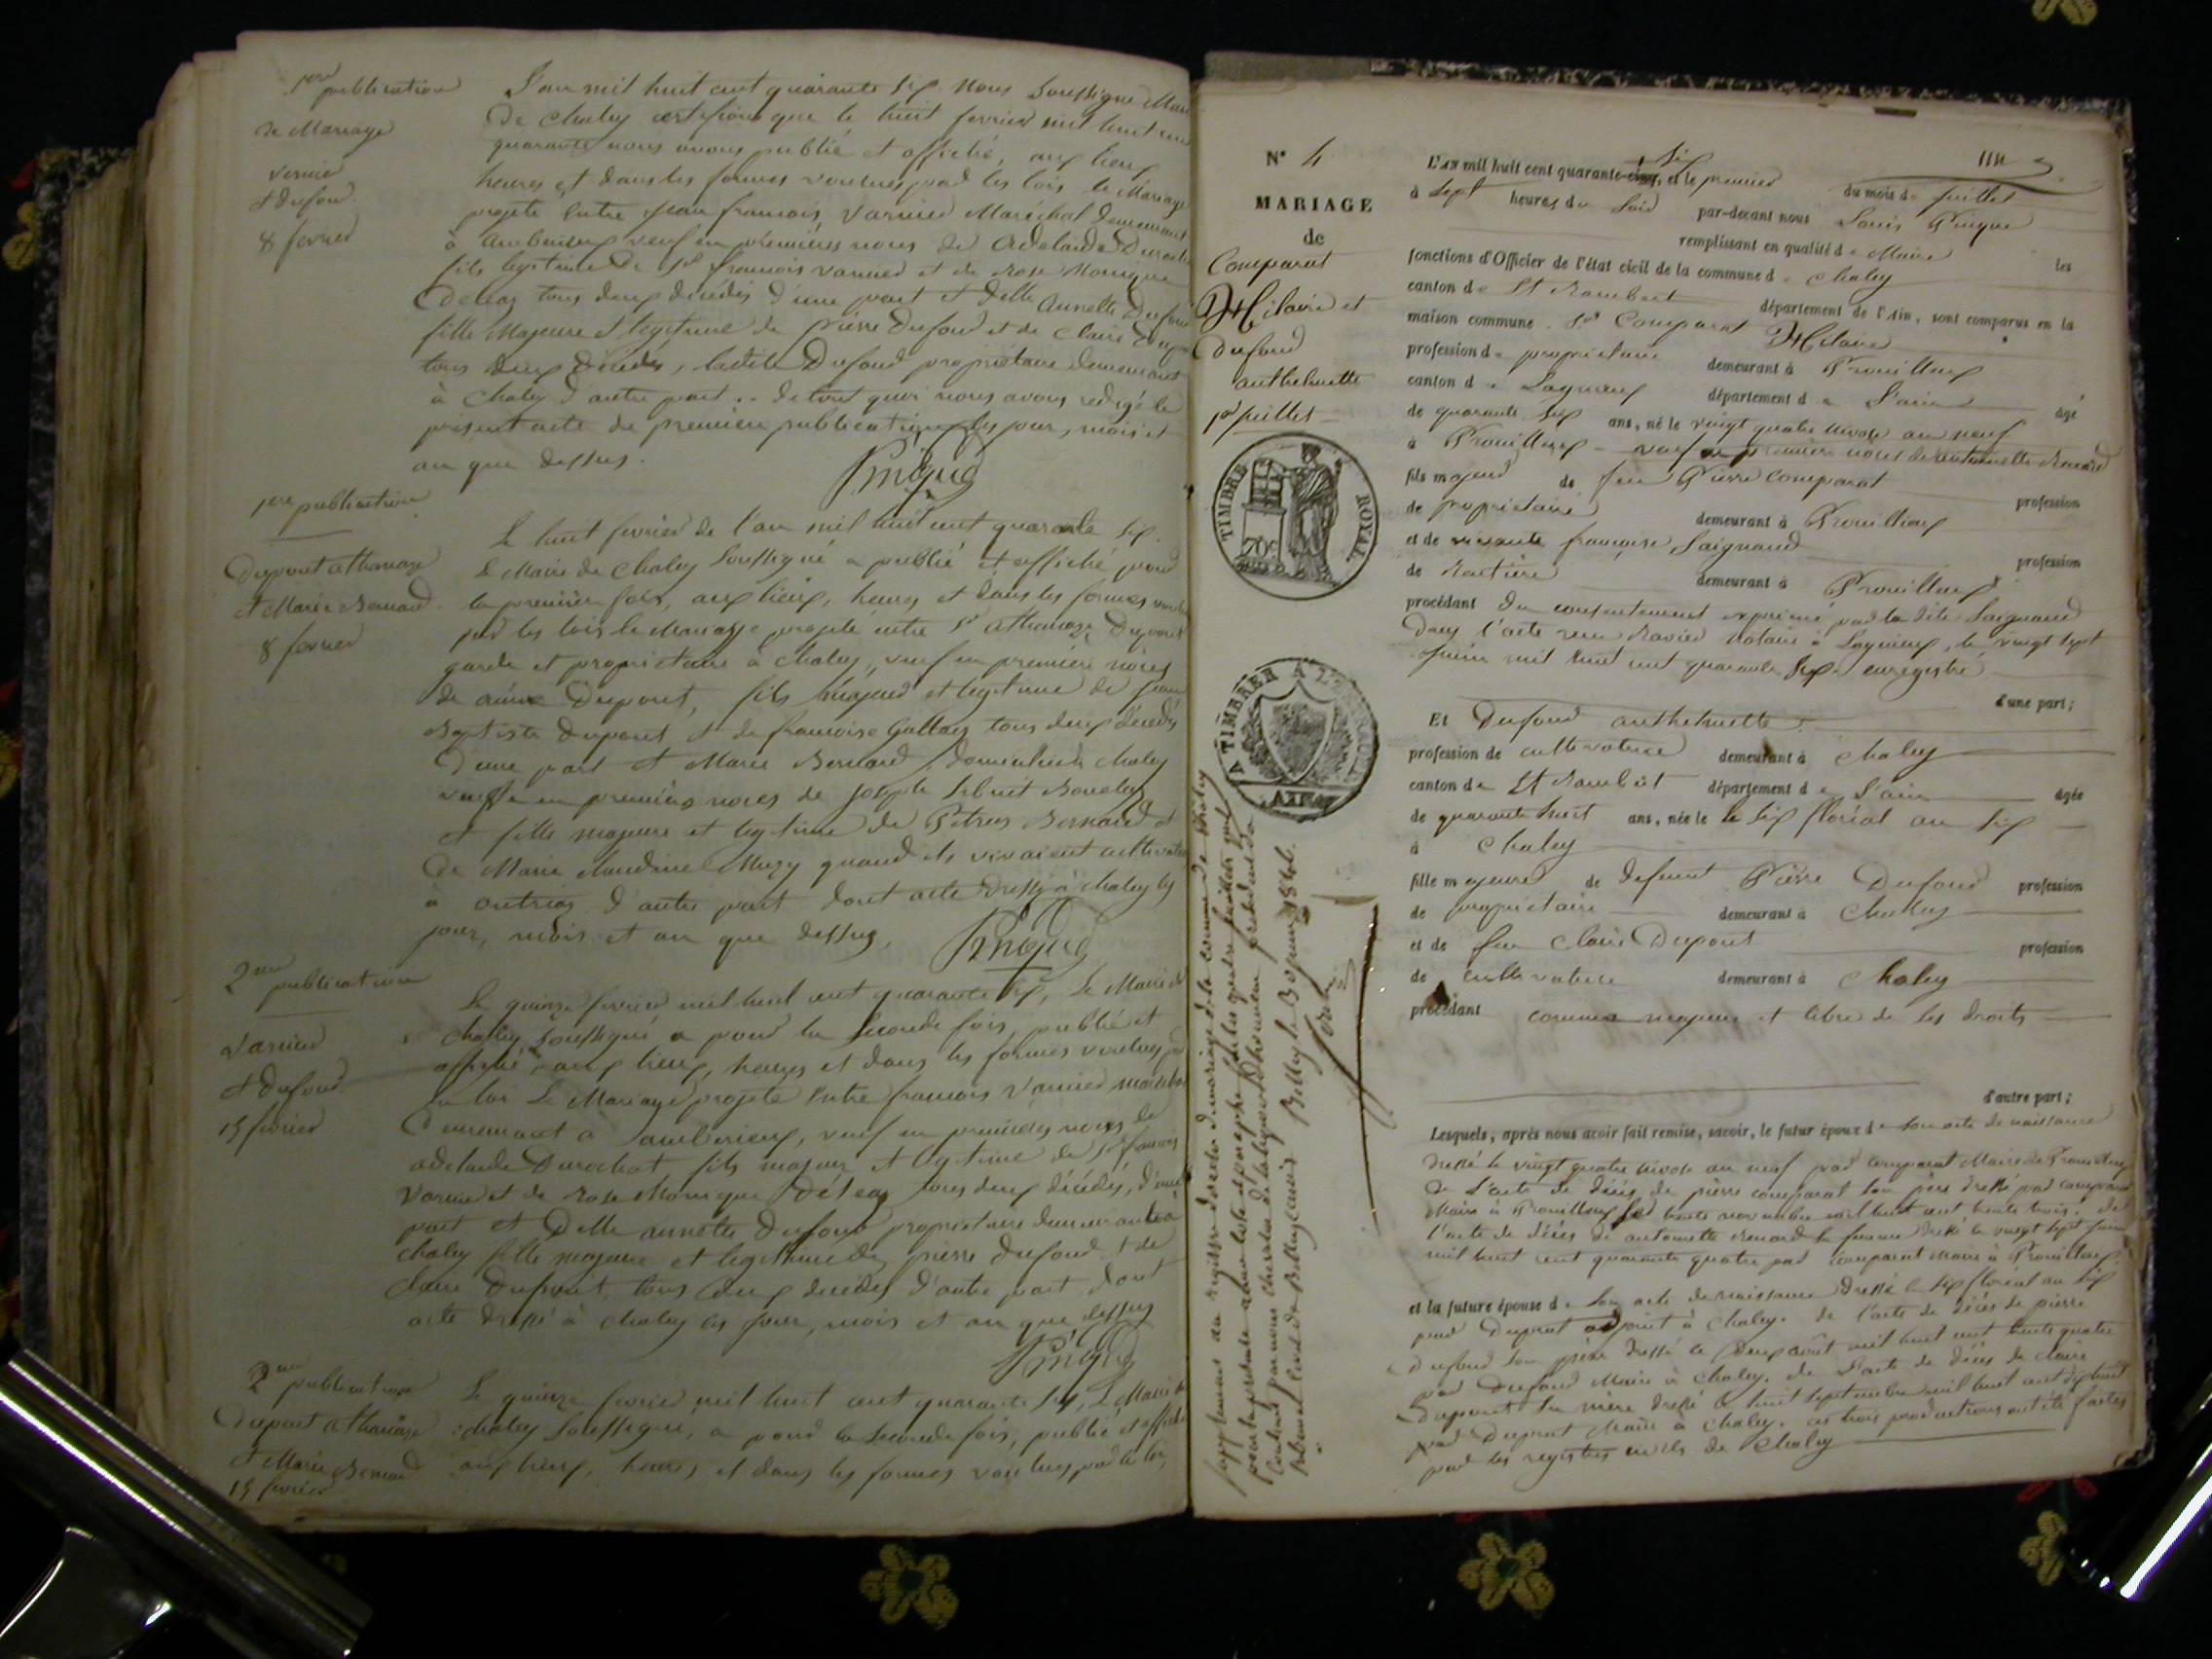 1ere publication
de Mariage
Varnier
et Dufour
8 fevrier
L'an mil huit cent quarante six nous soussigné Maire
de Chaley certifions que le huit fevrier mil huit cent
quarante nous avons publié et affiché, aux lieux
heures et dans les formes voulues par les lois le Mariage
projeté entre jean francois Varnier Maréchal demeurant
à Amberieux veuf en premières noces de Adelaide Durochat
fils legitime de Sr francois Varnier et de Rose Monique
tous deux décédés d'une part et Delle Annette Dufour
fille Majeure et legitime de pierre Dufour et de Claire Dupont
tous deux décédés, ladite Dufour propriétaire demeurant
à Chaley d'autre part. de tout quoi nous avons redigé le
présent acte de première publication les jour, mois et
an que dessus.
Pingue
1ere publication
Dupont athanaze
et Marie Bernard
8 fevrier
Le huit fevrier de l'an mil huit cent quarante six
Le Maire de Chaley soussigné a publié et affiché pour
la première fois, aux lieux, heures et dans les formes voulues
par les lois le Mariage projeté entre Sr athanaze Dupont
garde et propriétaire à Chaley, veuf en première noces
de Dupont, fils Majeur et legitime de jean
Baptiste Dupont et de francoise Gallay tous deux décédés
d'une part et Marie Bernard, domiciliée à Chaley
veuve en première noces de joseph
et fille majeure et legitime de Petrus Bernard et
de Marie Claudine Muzy quand ils vivaient
à d'autre part dont acte dressé à Chaley les
jour, mois et an que dessus,
Pingue
2me publication
Varnier
et Dufour
15 fevrier
Le quinze fevrier mil huit cent quarante six, Le Maire de
Chaley soussigné a pour la seconde fois, publié et
affiché, aux lieux, heures et dans les formes voulues par
la loi Le Mariage projeté entre francois Varnier maréchal
demeurant à amberieux, veuf en premières noces de
adelaide Durochat fils majeur et legitime de Sr francois
Varnier et de Rose Monique tous deux décédés, d'une
part et Delle annette Dufour propriétaire demeurante à
Chaley fille majeure et legitime de pierre Dufour et de
Claire Dupont, tous deux décédés d'autre part dont
acte dressé à Chaley les jour, mois et an que dessus
Pingue
2me publication
Dupont athanaze
et Marie Bernard
15 fevrier
Le quinze fevrier mil huit cent quarante six, Le Maire de
Chaley soussigné, a pour la seconde fois, publié et affiché
aux lieux, heures et dans les formes voulues par la loi,
N° 4
MARIAGE
de
Comparat
Hilaire et
Dufour
anthelmette
1er juillet
TIMBRE ROYAL
70c
A TIMBRER A L'EXTRAORD.
L'AN mil huit cent quarante-cinq, six et le premier du mois de juillet
à Sept heures du Soir par-devant nous Louis Pingue
remplissant en qualité de Maire les
fonctions d'Officier de l'état civil de la commune de Chaley
canton de St Rambert département de l'Ain, sont comparus en la
maison commune Sr Comparat Hilaire
profession de propriétaire demeurant à Proulieux
canton de Lagnieux département de L'ain âgé
de quarante six ans, né le vingt quatre nivose an neuf
à Proulieux veuf en première noces de antoinette Renard
fils majeur de feu Pierre Comparat profession
de propriétaire demeurant à Proulieux
et de vivante françoise Saignaud profession
de Rentière demeurant à Proulieux
procédant du consentement exprimé par la dite Saignaud
dans l'acte reçu Ravier Notaire à Lagnieux, le vingt sept
juin mil huit cent quarante six enregistré
d'une part;
Et Dufour anthelmette
profession de cultivatrice demeurant à Chaley
canton de St Rambert département de L'ain âgée
de quarante huit ans, née le le six floréal an six
à Chaley
fille majeure de defunt Pierre Dufour profession
de propriétaire demeurant à Chaley
et de feu Claire Dupont profession
de cultivatrice demeurant à Chaley
procédant comme majeure et libre de ses droits
d'autre part;
Lesquels, après nous avoir fait remise, savoir, le futur époux de son acte de naissance
dressé le vingt quatre nivose an neuf par Comparat Maire de Proulieux
de L'acte de décès de pierre Comparat son père dressé par Comparat
Maire à Proulieux le trente novembre mil huit cent trente trois. de
l'acte de décès de antoinette Renard sa femme dressé le vingt sept juin
mil huit cent quarante quatre par Comparat Maire à Proulieux
et la future épouse de son acte de naissance dressé le six floréal an six
par Duprat adjoint à Chaley. de l'acte de décès de pierre
Dufour son père dressé le deux août mil huit cent trente quatre
par Dufour Maire à Chaley. de L'acte de décès de Claire
Dupont sa mère dressé le huit septembre mil huit cent dix huit
par Duprat Maire à Chaley. ces trois productions ont été faites
par les registres civils de Chaley